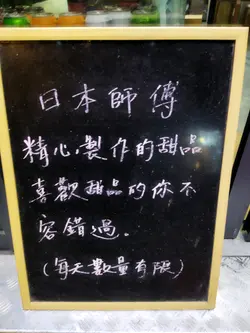 日本師傅
精心製作的甜品
喜歡甜品的你不
容錯過。
(每天數量有限)